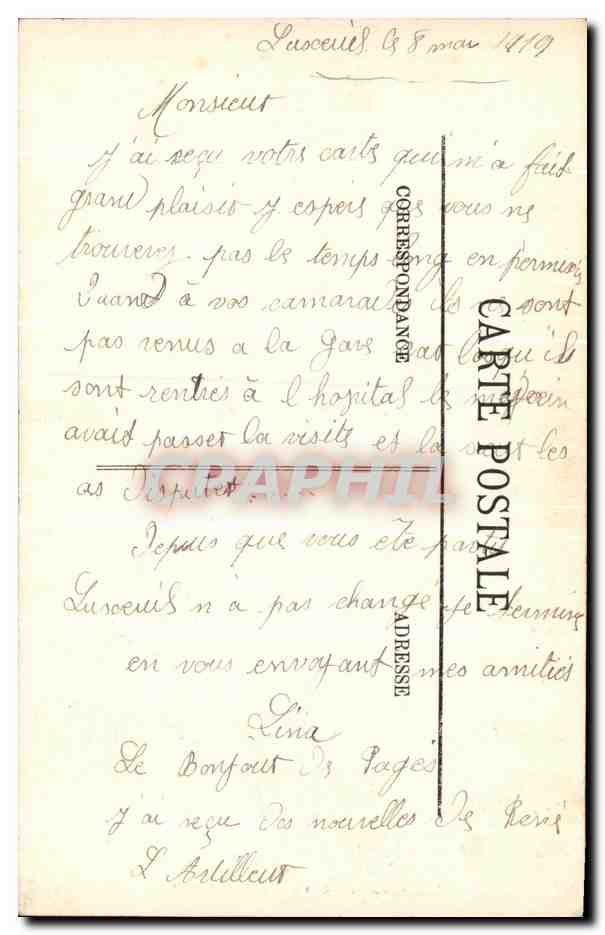 Luxeuil le 8 mai 1919
Monsieur
J'ai reçu votre carte qui m'a fait
grand plaisir J espere que vous ne
trouverez pas le temps long en permission
Quand à vos camarades ils ne sont
pas venus a la Gare car lorsqu'ils
sont rentrés à l hopital le medecin
avait passer la visite et la sont les
as disputer . . . .
Depuis que vous ete partis
Luxeuil n'à pas changé Je termine
en vous envoyant mes amitiés
Lina
Le Bonjour de Pages
J'ai reçu des nouvelles de René
L Artilleur
CARTE POSTALE
CORRESPONDANCE
ADRESSE
CPAPHIL